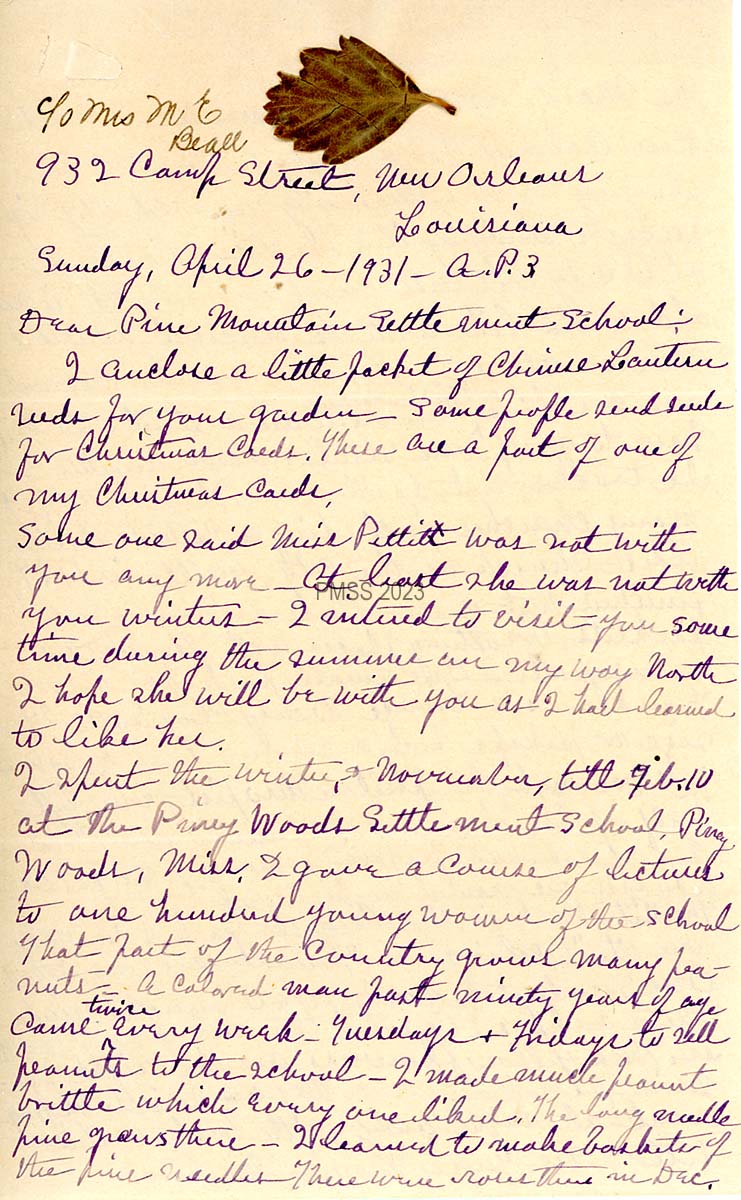 c/o Mrs M E
Beall
932 Camp Street, New Orleans
Louisiana
Sunday, April 26 - 1931 - A.P.3
Dear Pine Mountain Settlement School:
I enclose a little packet of Chinese Lantern
seeds for your garden - Some people send seeds
for Christmas Cards. These are a part of one of
my Christmas Cards.
Some one said Miss Pettitt was not with
you any more - At least she was not with
PMSS 2023
you winters - I intend to visit you some
time during the summer on my way North
I hope she will be with you as I had learned
to like her.
I spent the winter, November, till Feb. 10
at the Piney Woods Settlement School, Piney
Woods, Miss. I gave a course of lectures
to one hundred young women of the school
That part of the Country grows many pea-
nuts - A colored man past ninety years of age
twice
came every week - Tuesdays + Fridays to sell
peanuts to the school - I made much peanut
brittle which every one liked. The long needle
pine grows there - I learned to make baskets of
the pine needles There were roses there in Dec.